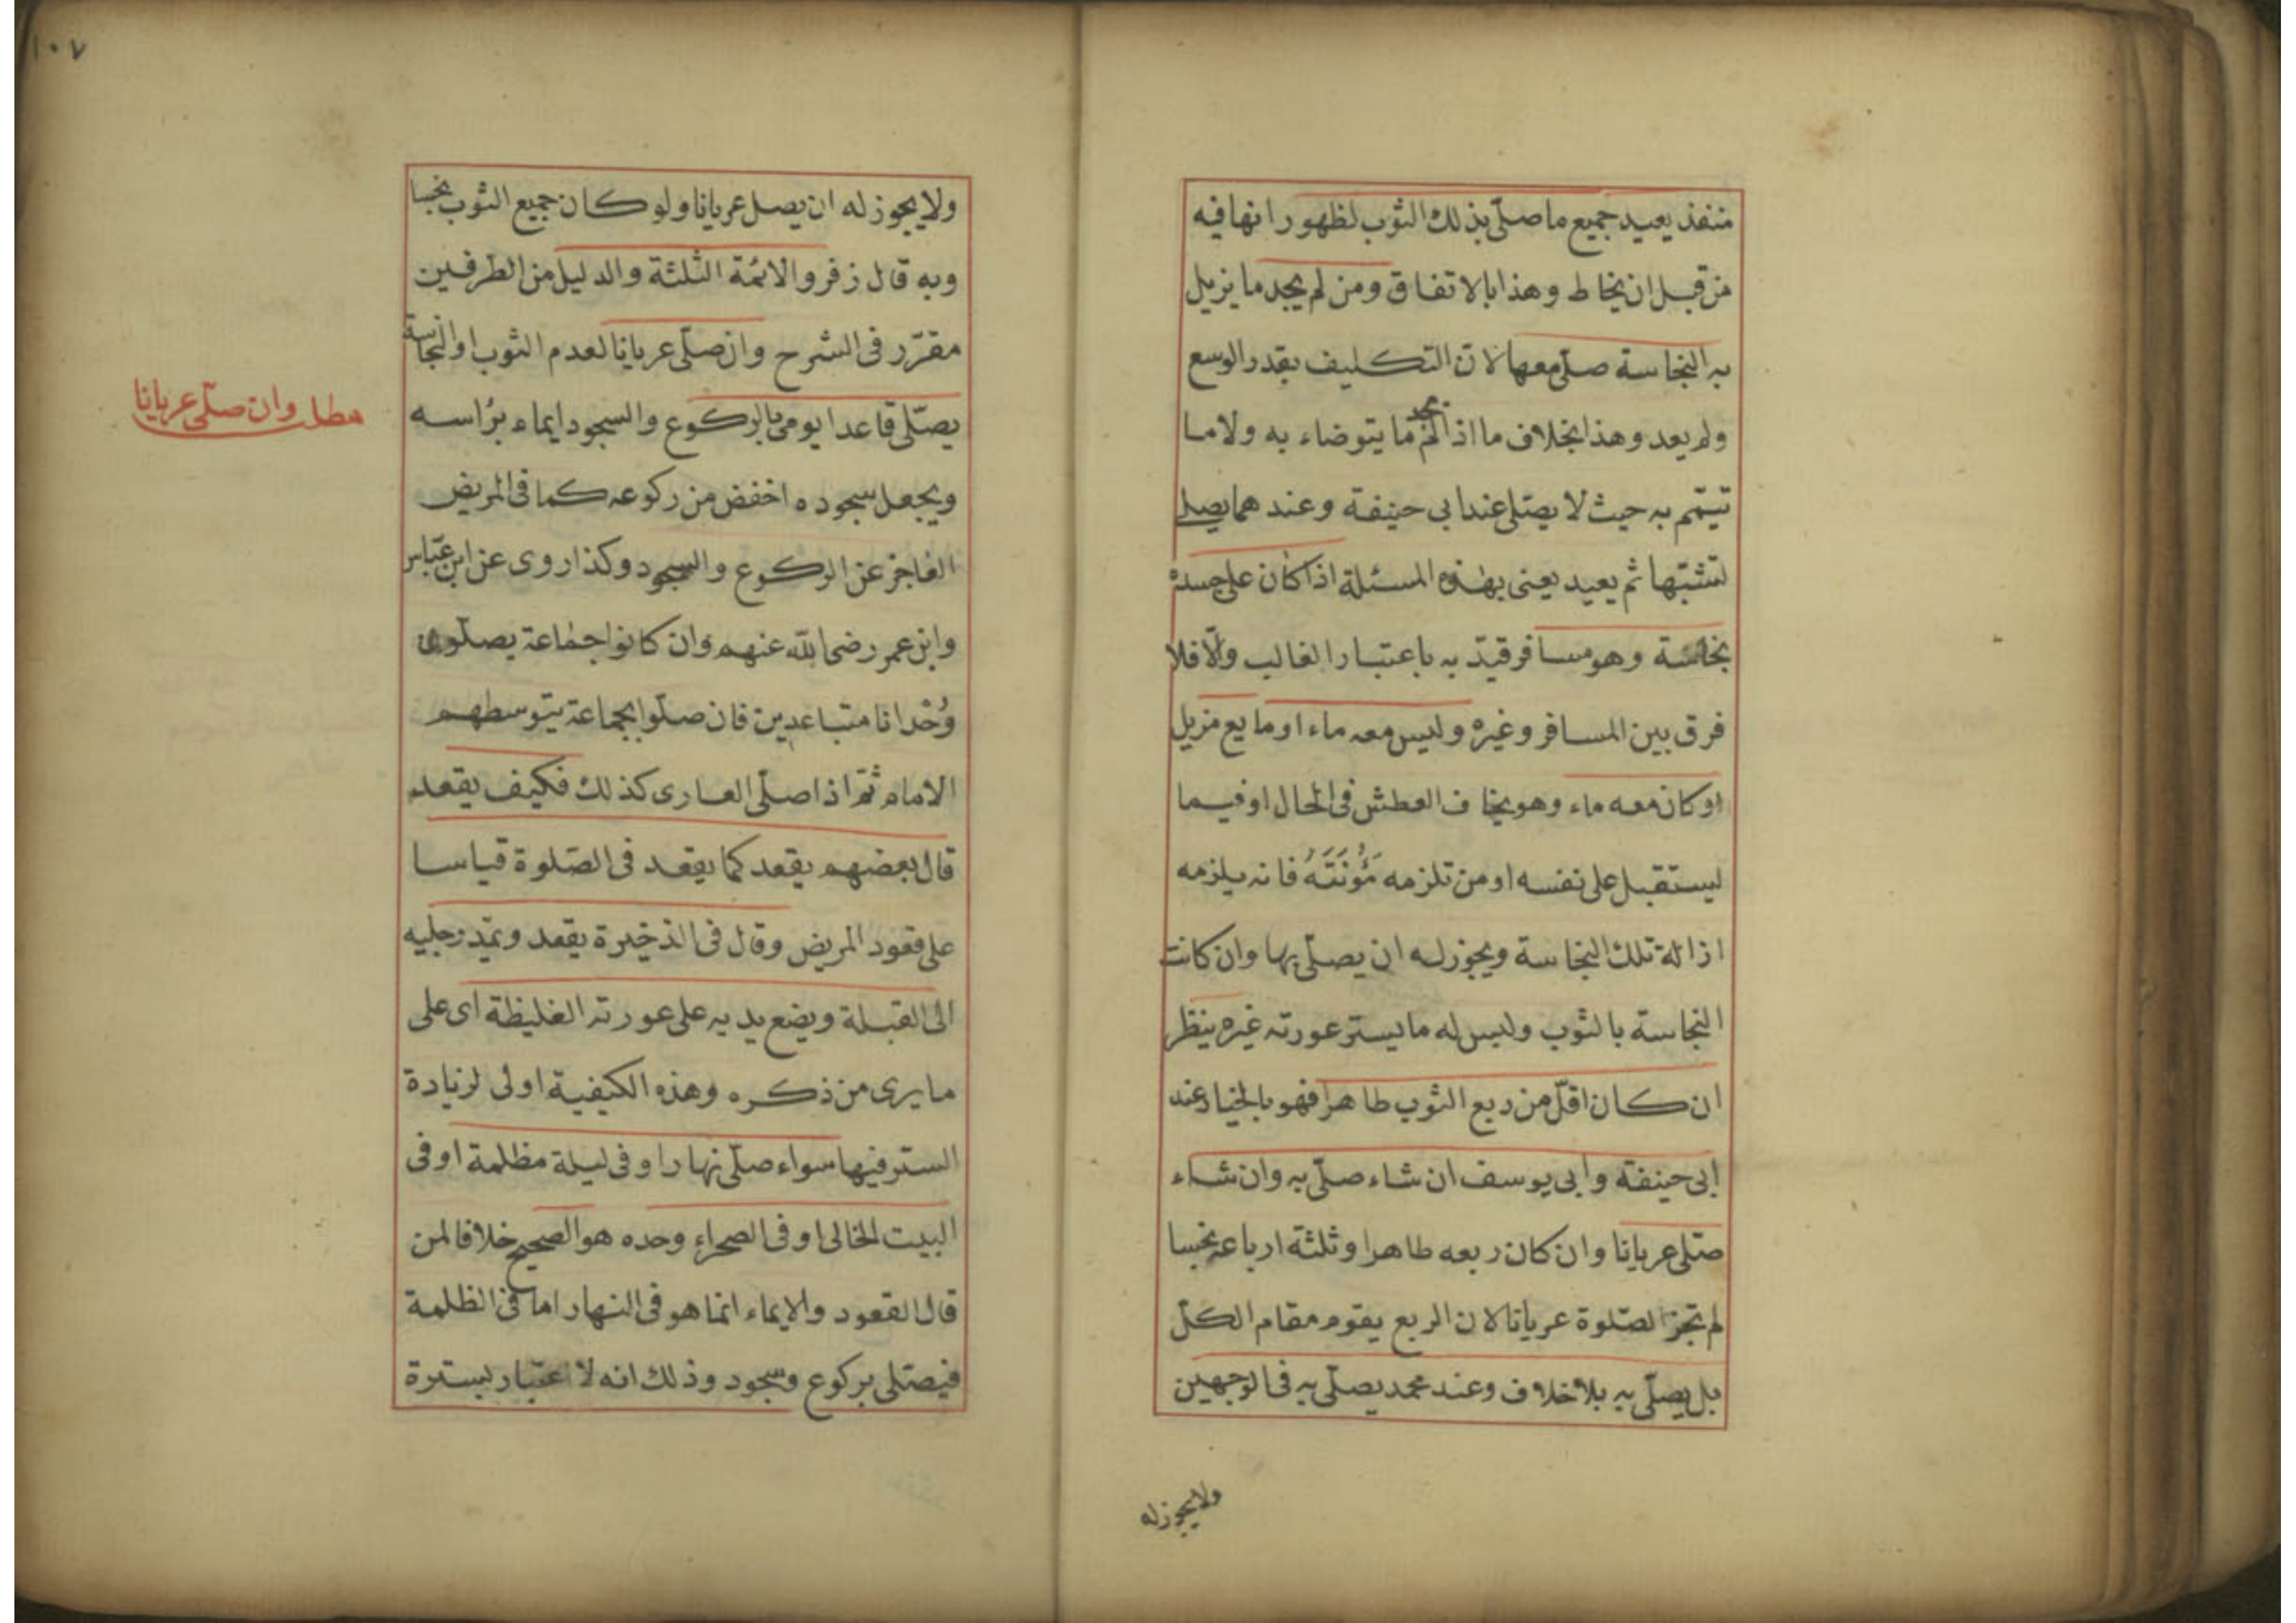 منفذ يعيد جميع ما صلّى بذلك الثوب لظهور انها فيه
من قبل ان يخاط وهذا بالاتفاق ومن لم يجد ما يزيل
به النجاسة صلّى معها لان التكليف بقدر الوسع
ولم يعد وهذا بخلاف ما اذا لم يجد ما يتوضاء به ولا ما
تيتمم به حيث لا يصلى عند ابى حنيفة وعندهما يصلى
تشبّها ثم يعيد يعنى بهذه المسئلة اذا كان على جسده
نجاسة وهو مسافر قيّد به باعتبار الغالب والّا فلا
فرق بين المسافر وغيره وليس معه ماء او مايع مزيل
او كان معه ماء وهو يخاف العطش فى الحال او فيما
يستقبل على نفسه او من تلزمه مَؤُنَتَهُ فانه يلزمه
ازالة تلك النجاسة ويجوز له ان يصلّى بها وان كانت
النجاسة بالثوب وليس له ما يستر عورته غيره ينظر
ان كان اقلّ من ربع الثوب طاهرا فهو بالخيار عند
ابى حنيفة وابى يوسف ان شاء صلّى به وان شاء
صلّى عريانا وان كان ربعه طاهرا وثلثة ارباعه نجسا
لم تجز الصّلوة عريانا لان الربع يقوم مقام الكلّ
بل يصلّى به بلا خلاف وعند محمد يصلّى به فى الوجهين
ولا يجوز له
١٠٧
ولا يجوز له ان يصل عريانا ولو كان جميع الثوب نجسا
وبه قال زفر والائمّة الثلثة والدليل من الطرفين
مقرّر فى الشرح وان صلّى عريانا لعدم الثوب او النجاسة
يصلّى قاعدا يومى بالركوع والسجود ايماء برأسه
ويجعل سجوده اخفض من ركوعه كما فى المريض
العاجز عن الركوع والسجود وكذا روى عن ابن عبّاس
وابن عمر رضى الله عنهم وان كانوا جماعة يصلّون
وُحْدانا متباعدين فان صلّوا بجماعة يتوسطهم
الامام ثمّ اذا صلّى العارى كذلك فكيف يقعد
قال بعضهم يقعد كما يقعد فى الصّلوة قياسا
على قعود المريض وقال فى الذخيرة يقعد ويمدّ رجليه
الى القبلة ويضع يديه على عورته الغليظة اى على
ما يرى من ذكره وهذه الكيفية اولى لزيادة
الستر فيها سواء صلّى نهارا او فى ليلة مظلمة او فى
البيت الخالى او فى الصحراء وحده هو الصحيح خلافا لمن
قال القعود والايماء انما هو فى النهار اما فى الظلمة
فيصلى بركوع وسجود وذلك انه لا اعتبار بسترة
مطلب وان صلّى عريانا